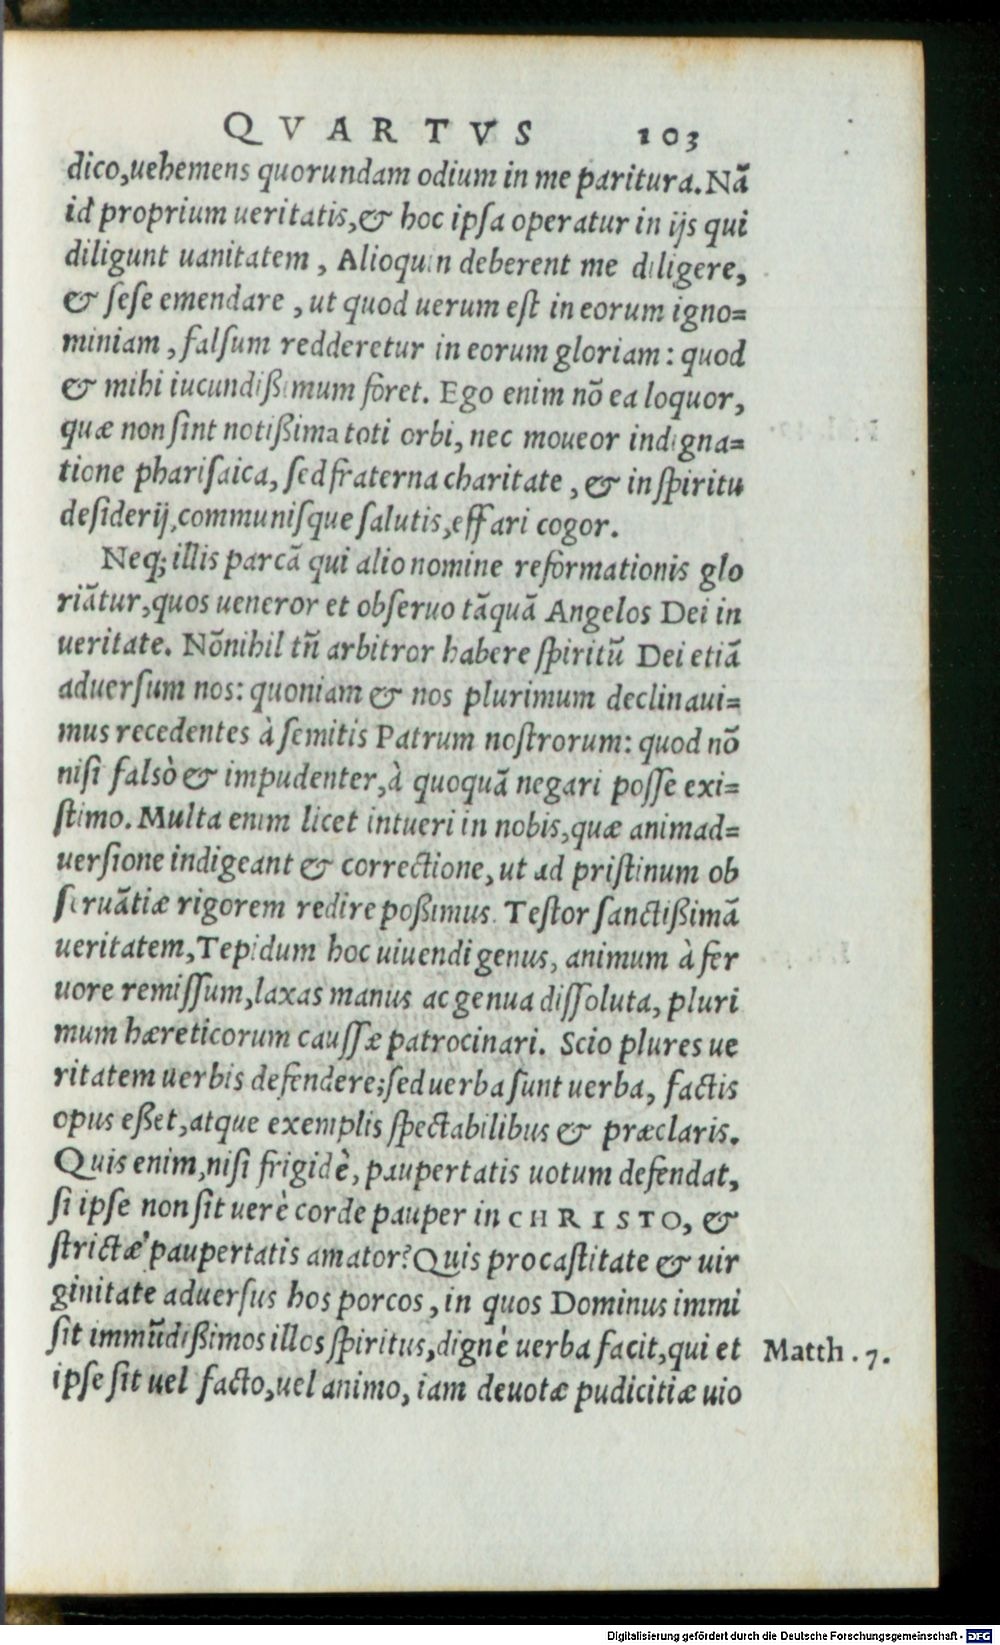 QVARTVS 103
dico,uehemens quorundam odium in me paritura.Nã
id proprium ueritatis,& hoc ipſa operatur in ijs qui
diligunt uanitatem , Alioquin deberent me diligere,
& ſeſe emendare , ut quod uerum eſt in eorum igno=
miniam , falſum redderetur in eorum gloriam : quod
& mihi iucundißimum foret. Ego enim nõ ea loquor,
quæ non ſint notißima toti orbi, nec moueor indigna=
tione phariſaica, ſed fraterna charitate , & in ſpiritu
deſiderij,communiſque ſalutis,effari cogor.
Neq; illis parcã qui alio nomine reformationis glo
riãtur,quos ueneror et obſeruo tãquã Angelos Dei in
ueritate. Nõnihil tñ arbitror habere ſpiritũ Dei etiã
aduerſum nos: quoniam & nos plurimum declinaui=
mus recedentes à ſemitis Patrum noſtrorum: quod nõ
niſi falsò & impudenter,à quoquã negari poſſe exi=
ſtimo. Multa enim licet intueri in nobis,quæ animad=
uerſione indigeant & correctione, ut ad priſtinum ob
ſeruãtiæ rigorem redire poßimus. Teſtor ſanctißimã
ueritatem,Tepidum hoc uiuendi genus, animum à fer
uore remiſſum,laxas manus ac genua diſſoluta, pluri
mum hæreticorum cauſſæ patrocinari. Scio plures ue
ritatem uerbis defendere;ſed uerba ſunt uerba, factis
opus eßet,atque exemplis ſpectabilibus & præclaris.
Quis enim,niſi frigidè, paupertatis uotum defendat,
ſi ipſe non ſit uerè corde pauper in CHRISTO, &
ſtrictæ paupertatis amator? Quis pro caſtitate & uir
ginitate aduerſus hos porcos , in quos Dominus immi
ſit immũdißimos illos ſpiritus,dignè uerba facit,qui et Matth . 7.
ipſe ſit uel facto,uel animo, iam deuotæ pudicitiæ uio
Digitalisierung gefördert durch die Deutsche Forschungsgemeinschaft - DFG